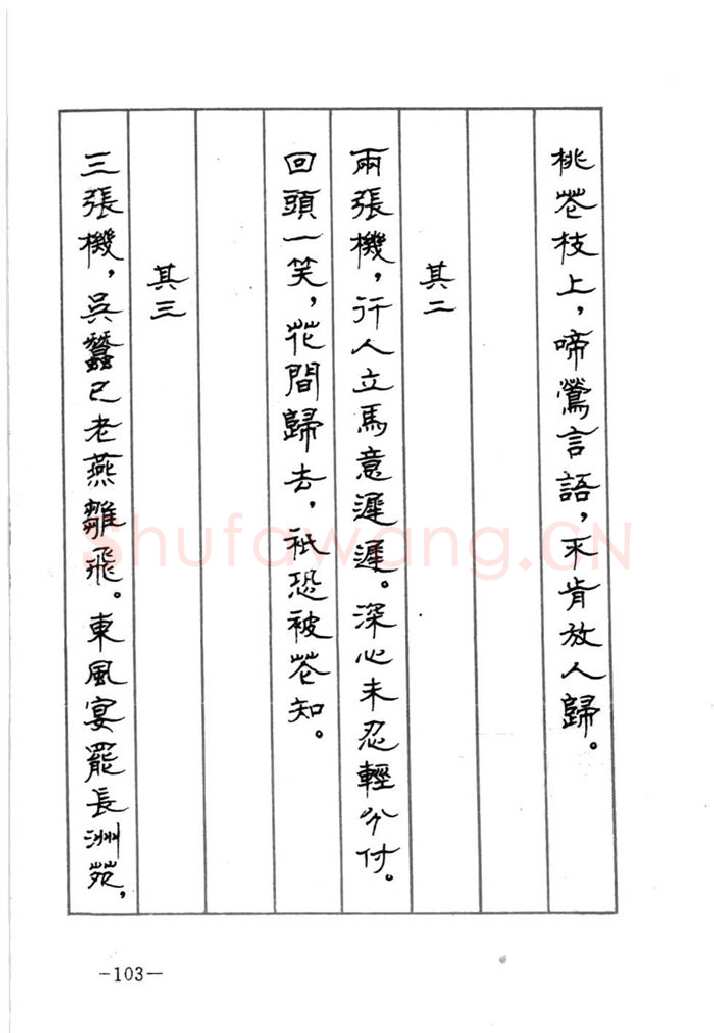 桃花枝上，啼鶯言語，不肯放人歸。
其二
兩張機，行人立馬意遲遲。深心未忍輕分付。
回頭一笑，花間歸去，祇恐被花知。
其三
三張機，吳蠶已老燕雛飛。東風宴罷長洲苑，
shufawang.CN
-103-